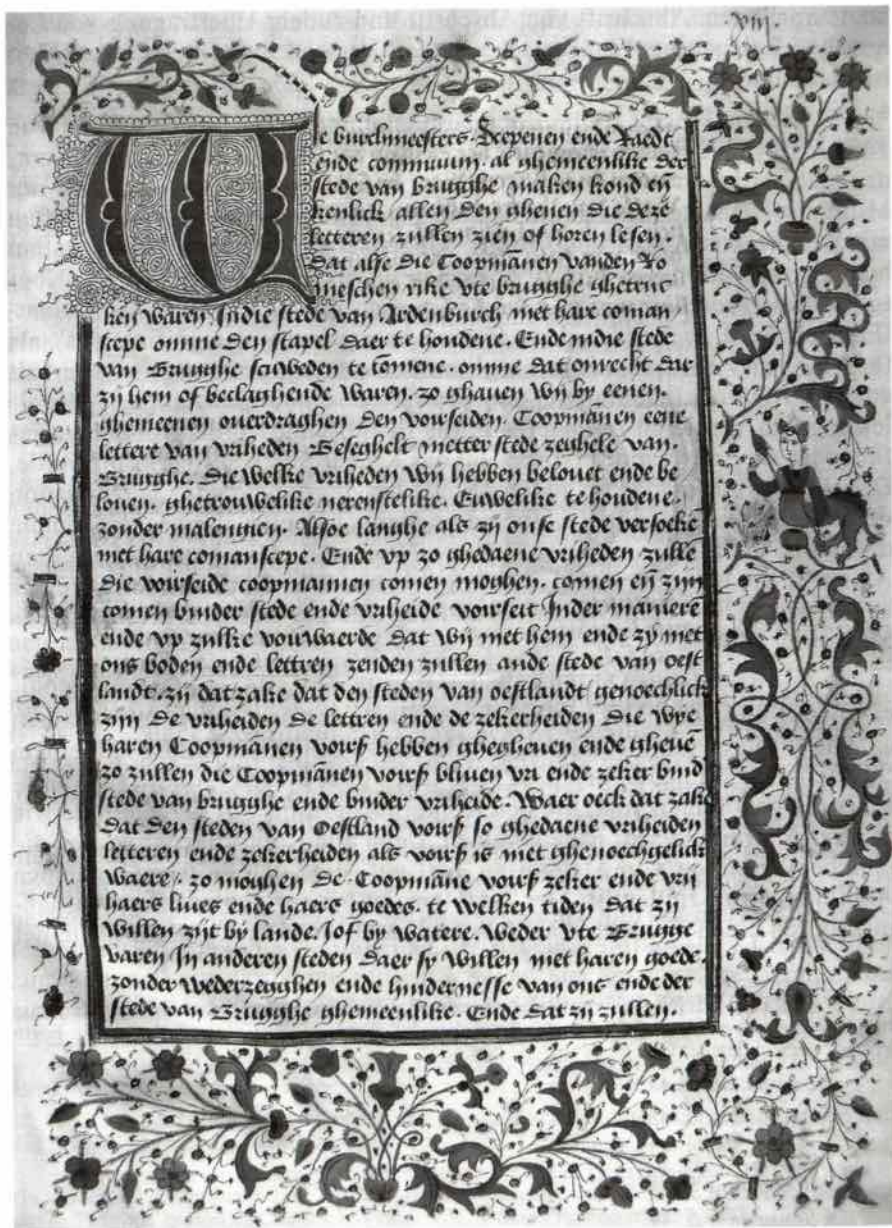 xiij.
We burchmeesters. Scepenen ende Raedt
ende commuun. al ghemeenlike der
stede van brugghe maken kond en̄
kenlick allen den ghenen die deze
letteren zullen zien of horen lesen.
Dat alse die Coopmāuen vanden Ro
meschen rike vte brugghe ghetruc
ken waren. Indie stede van Ardenburch met hare coman
scepe omme den stapel daer te houdene. Ende indie stede
van Brugghe scuweden te comene. omme dat onrecht dat
zij hem of beclaghende waren. zo ghauen wij by eenen.
ghemeenen ouerdraghen den vorseiden. Coopmānen eene
lettere van vriheden Beseghelt metter stede zeghele van.
Brugghe. Die welke vriheden wij hebben belouet ende be
louen. ghetrouwelike nerenstelike. Euwelike te houdene.
zonder malengien. Alsoe langhe als zij onse stede versoekē
met hare comanscepe. Ende vp zo ghedaene vriheden zullē
die vorseide coopmannen comen moghen. comen en̄ zijn
comen binder stede ende vriheide vorseit Inder manierē
ende vp zulke vorwaerde dat wij met hem ende zy met
ons boden ende lettren zenden zullen ande stede van oest
landt. zij dat zake dat den steden van oestlandt genoechlick
zijn de vriheiden de lettren ende de zekerheiden die wye
haren Coopmānen vors hebben ghegheuen ende gheuē
zo zullen die Coopmānen vors bliuen vri ende zeker bind
stede van brugghe ende binder vriheide. Waer oeck dat zake
dat den steden van Oestland vors so ghedaene vriheiden
letteren ende zekerheiden als vors is niet ghenoechgelick
waere. zo moghen de Coopmāne vors zeker ende vrij
haers liues ende haers goedes. te welken tiden dat zij
willen zijt bij lande. Iof by watere. weder vte Brugge
varen In anderen steden daer sy willen met haren goede.
zonder wederzegghen ende hindernesse van ons ende der
stede van Brugghe ghemeenlike. Ende dat zij zullen.